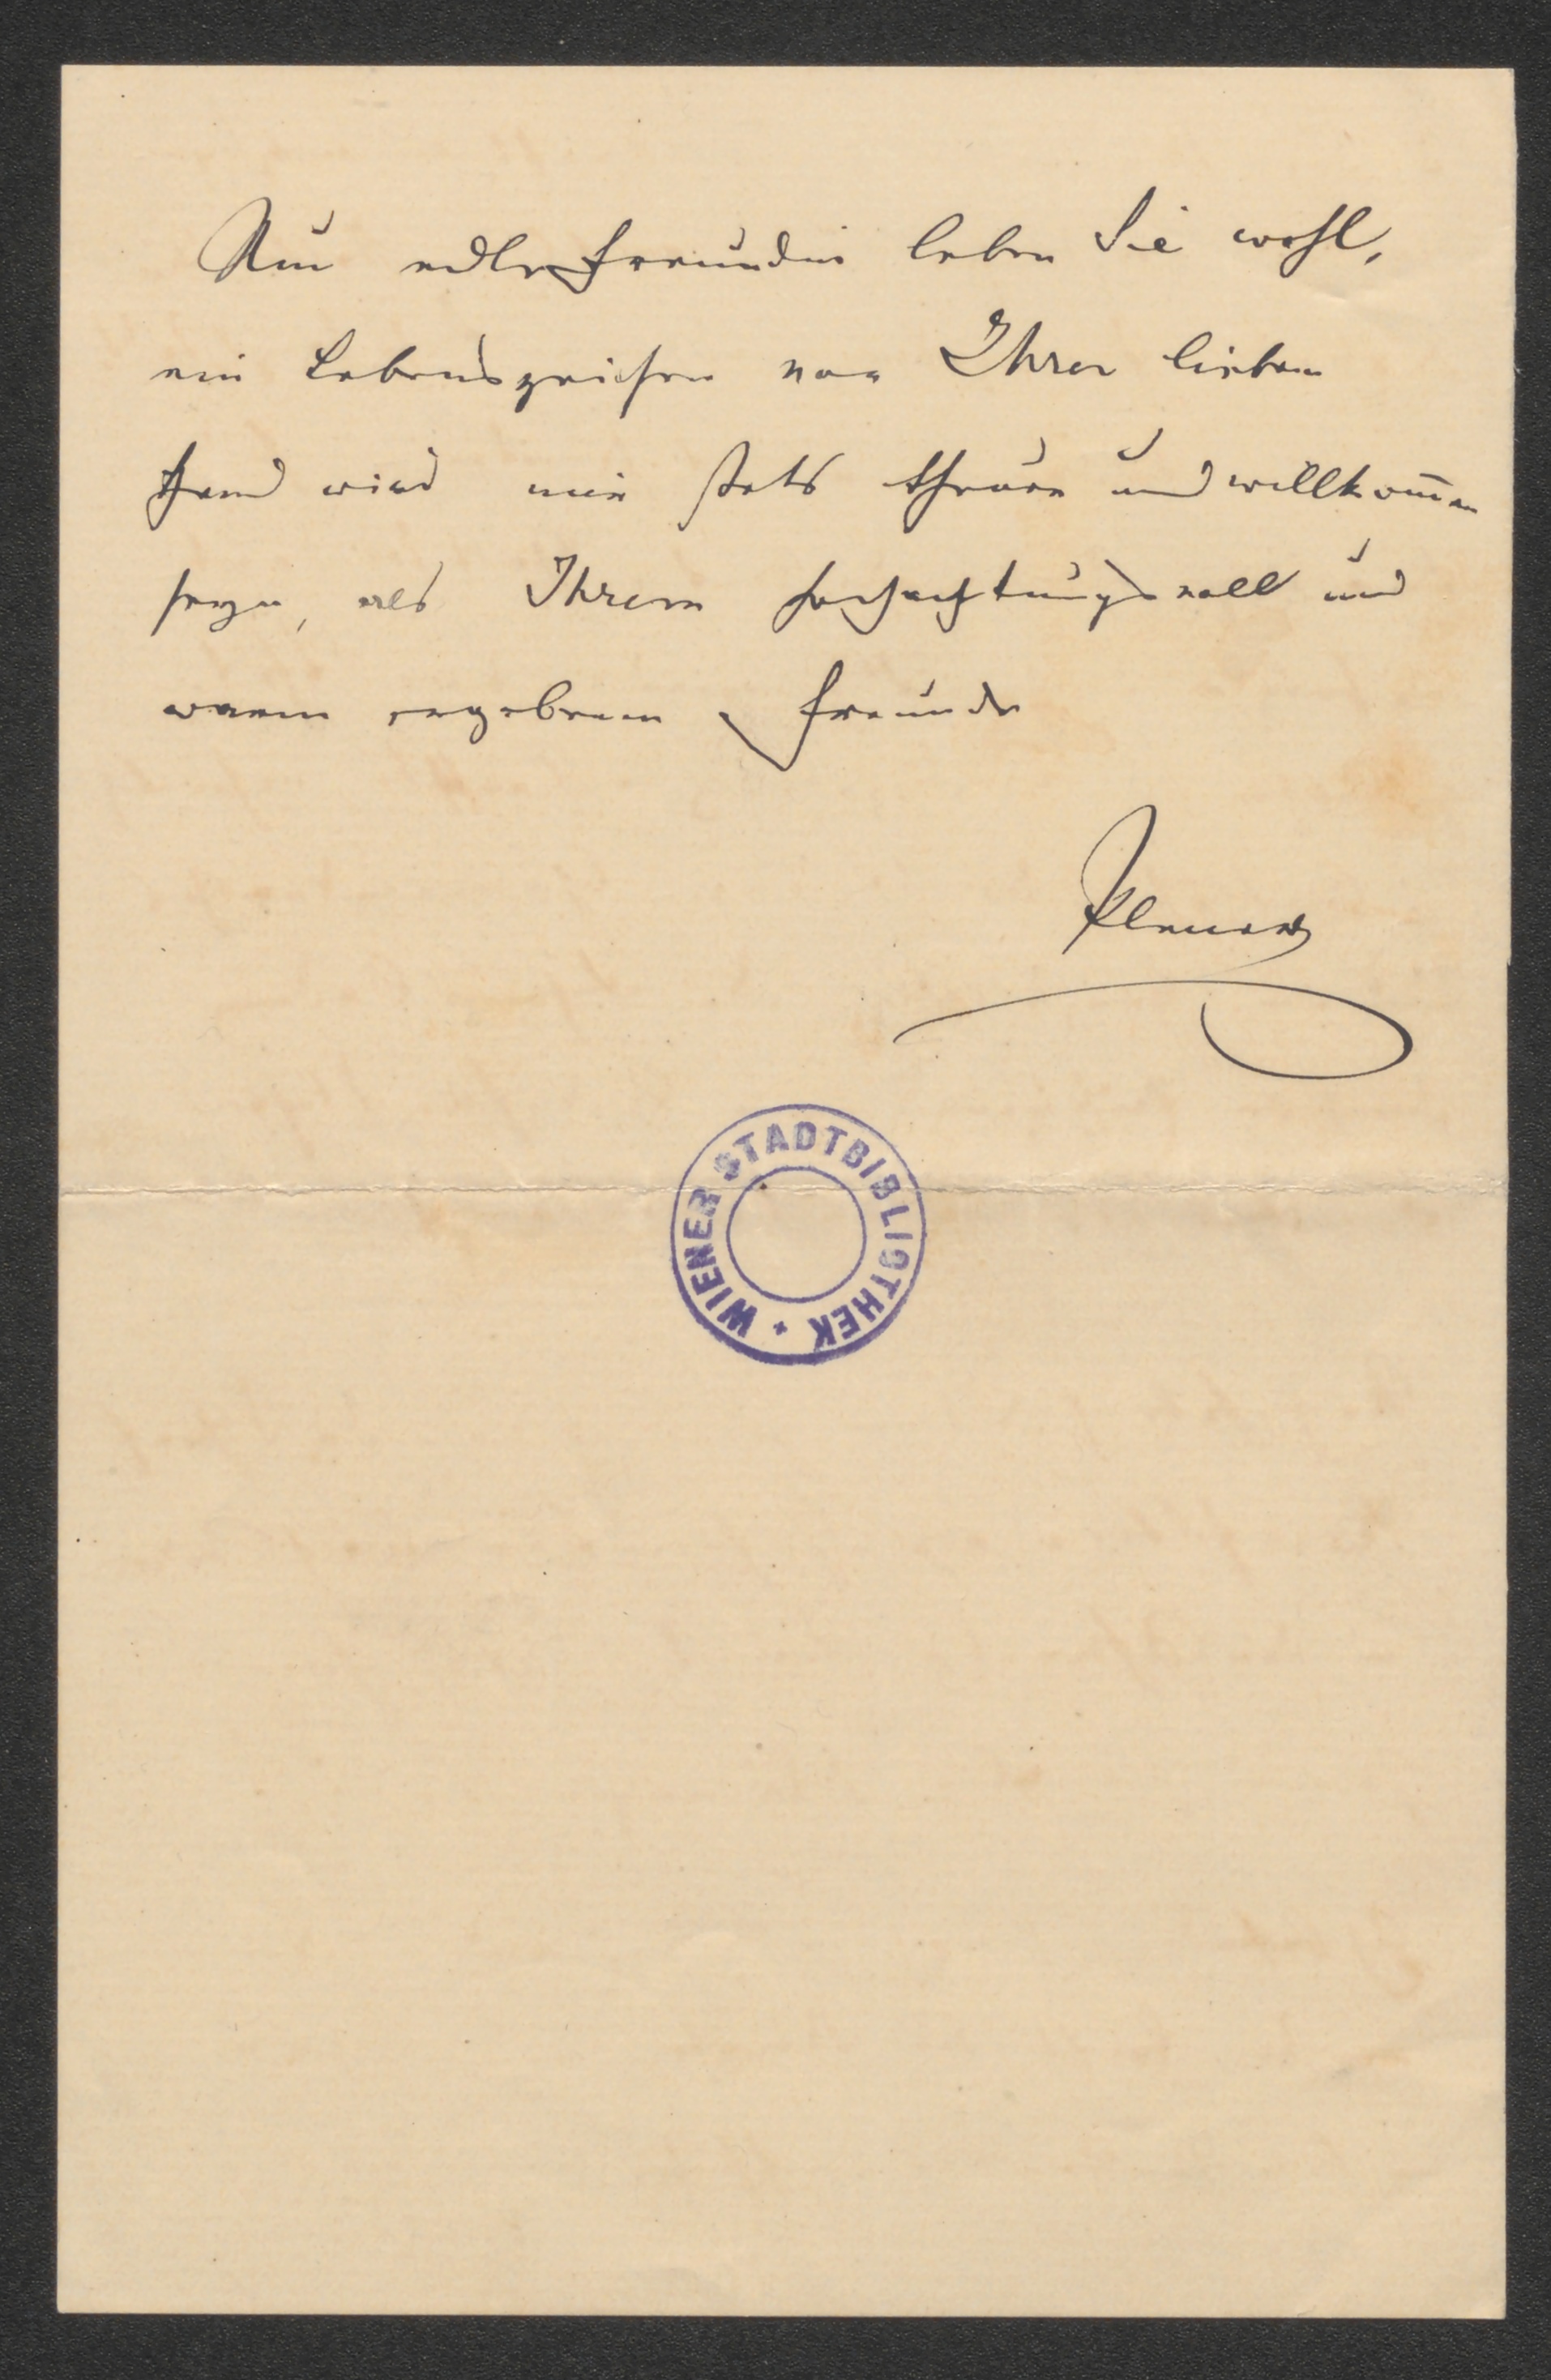 Nun edle Freundin leben Sie wohl,
ein Lebenszeichen von Ihrer lieben
Hand wird mir stets theuer und willkom̄en
seyn, als Ihrem hochachtungsvoll und
warm ergebenen Freunde
WIENER STADTBIBLIOTHEK *